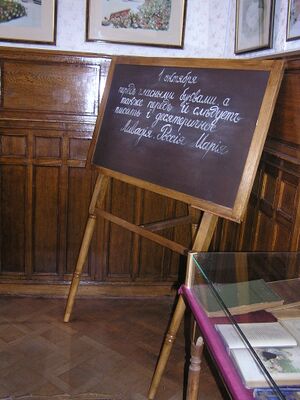 1 октября
передъ гласными буквами, а
также передъ й слѣдуетъ
писать i десятеричное
Ливадiя, Россiя, Марiя